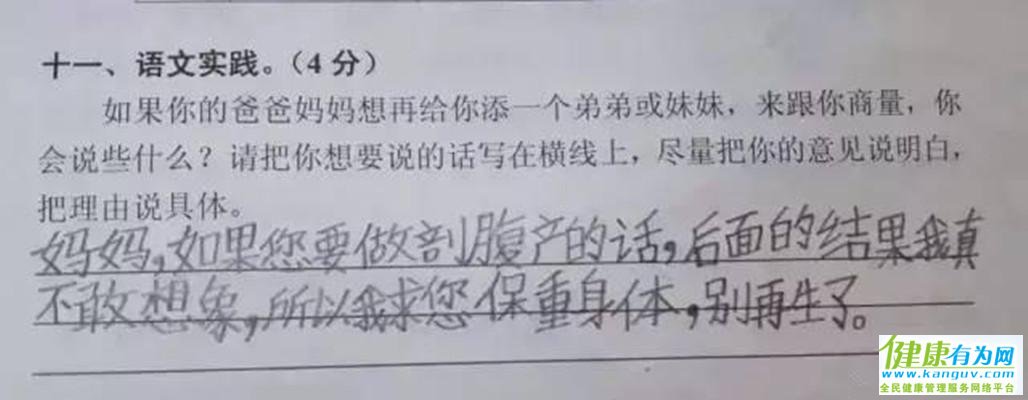 十一、语文实践。（4分）
如果你的爸爸妈妈想再给你添一个弟弟或妹妹，来跟你商量，你
会说些什么？请把你想要说的话写在横线上，尽量把你的意见说明白，
把理由说具体。
妈妈，如果您要做剖腹产的话，后面的结果我真
不敢想象，所以我求您保重身体，别再生了。
健康有为网
www.kanguv.com
全民健康管理服务网络平台